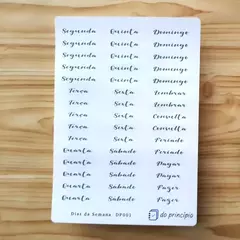 Segunda Quinta Domingo
Segunda Quinta Domingo
Segunda Quinta Domingo
Segunda Quinta Domingo
Segunda Quinta Domingo
Terça Sexta Lembrar
Terça Sexta Lembrar
Terça Sexta Consulta
Terça Sexta Consulta
Terça Sexta Feriado
Quarta Sábado Feriado
Quarta Sábado Pagar
Quarta Sábado Pagar
Quarta Sábado Fazer
Quarta Sábado Fazer
Dias da Semana DP001 do princípio